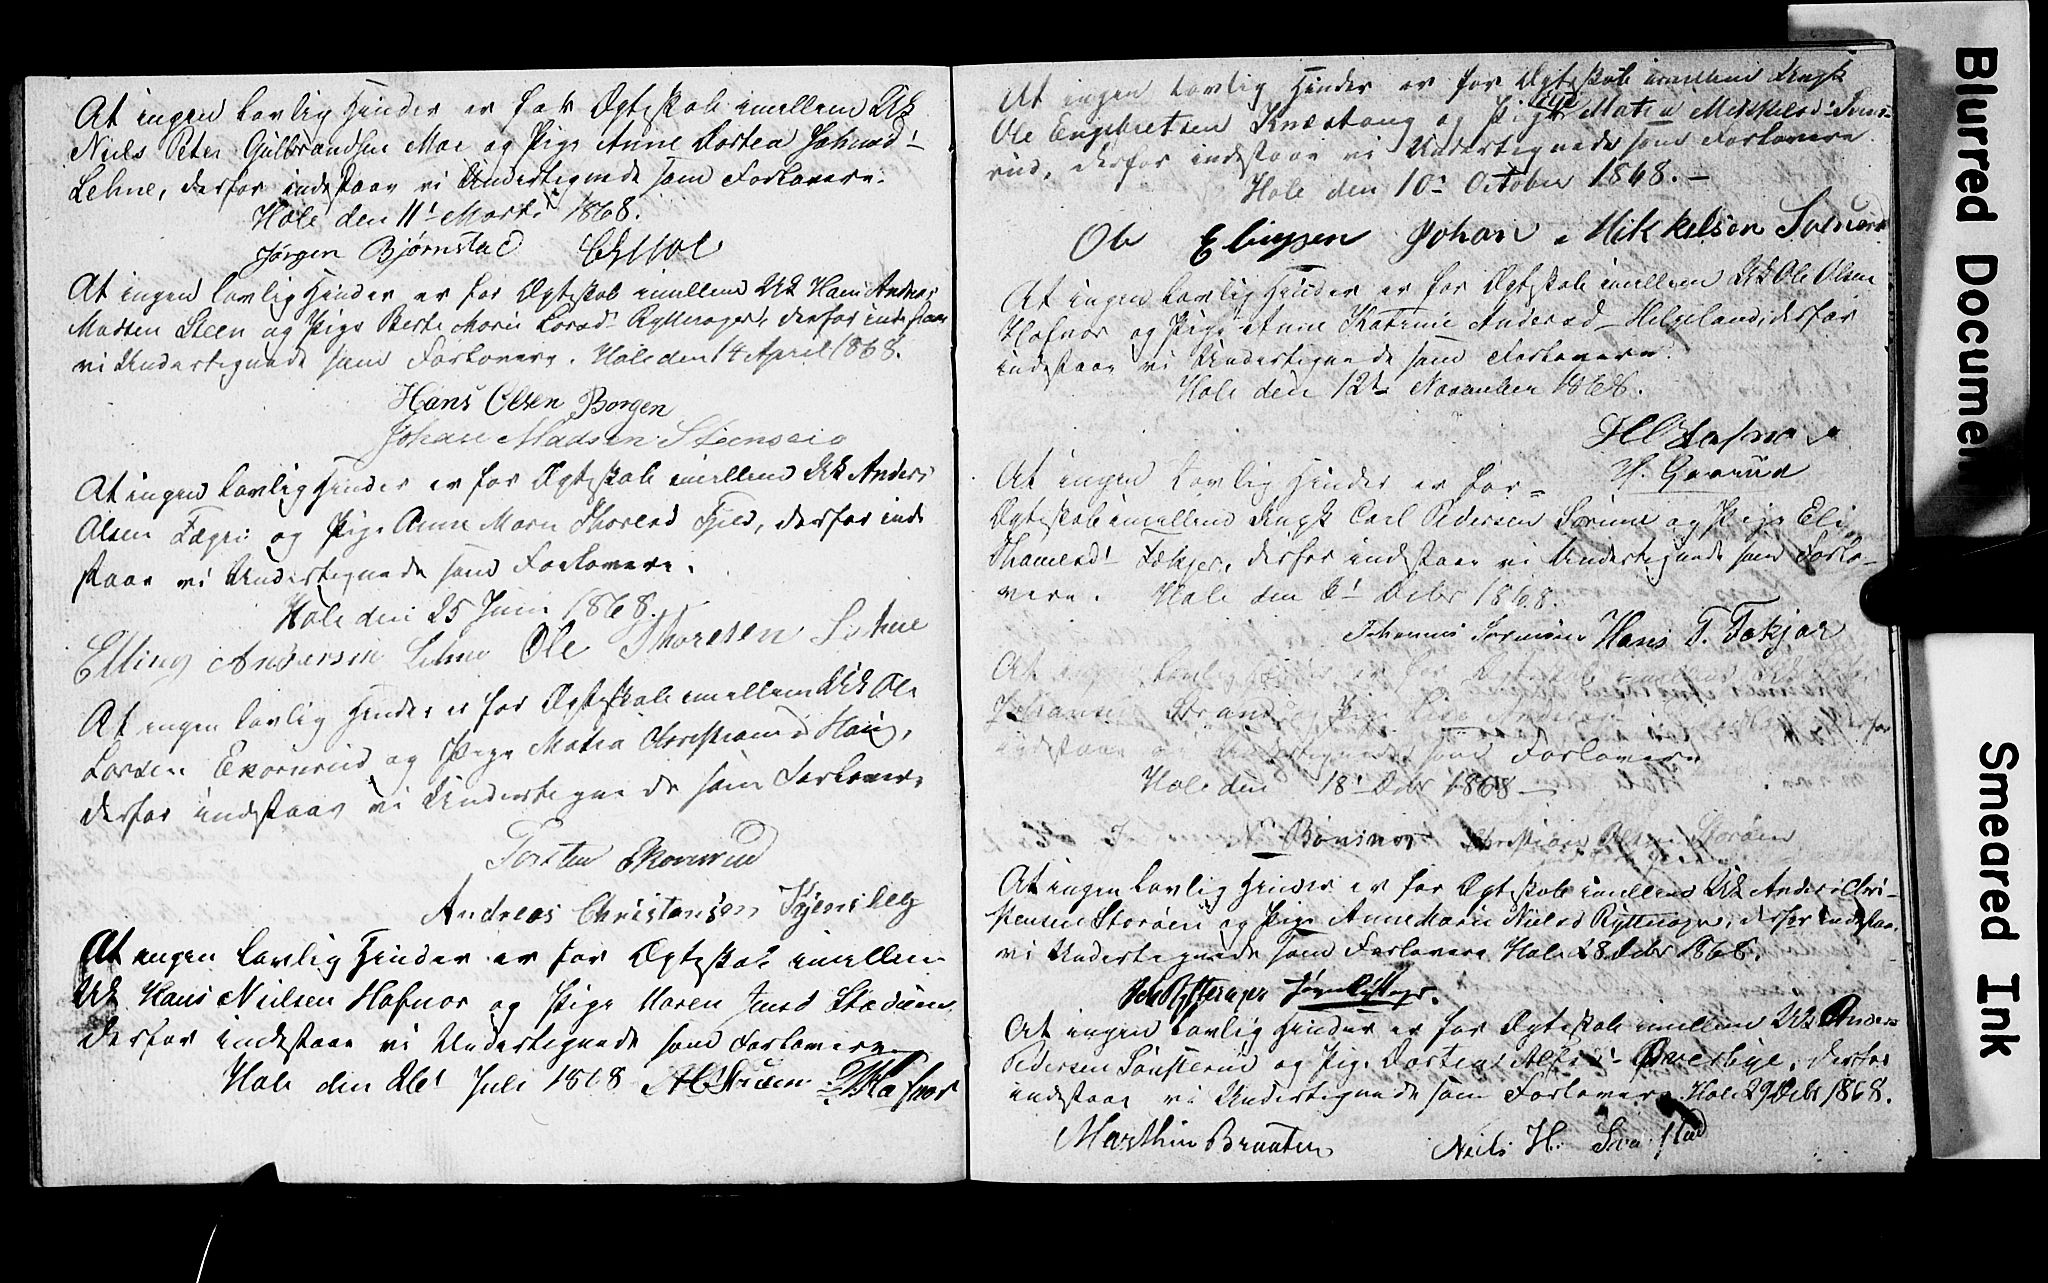 At ingen lovlig Hinder er for Ægteskab imellem Uk
Niels Peter Gulbrandsen Moe og Pige Anne Dortea Johnsd:
Lehne, derfor indestaar vi Undertegnede som Forlovere.
Hole den 11t Marts 1868.
Jørgen Bjørnstad
At ingen lovlig Hinder er for Ægteskab imellem Uk Hans Andreas
Madsen Steen og Pige Berte Marie Larsd: Rytterager, derfor indestaar
vi Undertegnede som Forlovere. Hole den 14 April 1868.
Hans Olsen Borgen
Johan Madsen
At ingen lovlig Hinder er for Ægteskab imellem Uk Anders
Olsen Fægri og Pige Anne Marie Thoresd Fjeld, derfor inde
staar vi Undertegnede som Forlovere.
Hole den 25 Juni 1868.
Elling Andersen Lehne Ole Thoresen Lehne
At ingen lovlig Hinder er for Ægteskab imellem Uk Ole
Larsen Ekornrud og Pige Matea Christiansd Haug,
derfor indestaar vi Undertegnede som Forlovere,
Torsten Ekornrud
Andreas Christansen
At ingen lovlig Hinder er for Ægteskab imellem
Uk Hans Nielsen Hafnor og Pige Maren Jensd
derfor indestaar vi Undertegnede som Forlovere
Hole den Juli 1868 Hafnor
At ingen lovlig Hinder er for Ægteskab imellem Ungk
Ole Engebretsen Knestang og Pige Matea Mikkelsd: Sons-
rud, derfor indestaar vi Undertegnede som Forlovere
Hole den 10: October 1868. —
Ole Johan Mikkelsen
At ingen lovlig Hinder er for Ægteskab imellem Uk Ole Olsen
Hafnor og Pige Anne Katrine Andersd Helgeland, derfor
indestaar vi Undertegnede som Forlovere
Hole den 12t November 1868.
At ingen lovlig Hinder er for=
Ægteskab imellem Ungk Carl Pedersen Sørum og Pige Eli
Thomesd: Fekjer, derfor indestaar vi Undertegnede som Forlo-
vere. Hole den Debr 1868.
Johannes Hans T. Fekjær
At ingen lovlig Hinder er for Ægteskab imellem Uk
Johansen Strand og Pige Lise
indestaar vi Undertegnede som Forlovere
Hole den 18t Debr 1868 —
Bønsnes Christian Olsen Storøen
At ingen lovlig Hinder er for Ægteskab imellem Uk Anders Chri-
stensen Storøen og Pige Anne Marie Nielsd Rytterager, derfor indestaar
vi Undertegnede som Forlovere Hole 28 Debr 1868.
Rytterager
At ingen lovlig Hinder er for Ægteskab imellem Uk Anders
Pedersen Sønsterud og Pige Dortea Alfsd: Øverbye, derfor
indestaar vi Undertegnede som Forlovere. Hole 29 Debr 1868.
Marthin Braaten Niels H.
Blurred Document
Smeared Ink